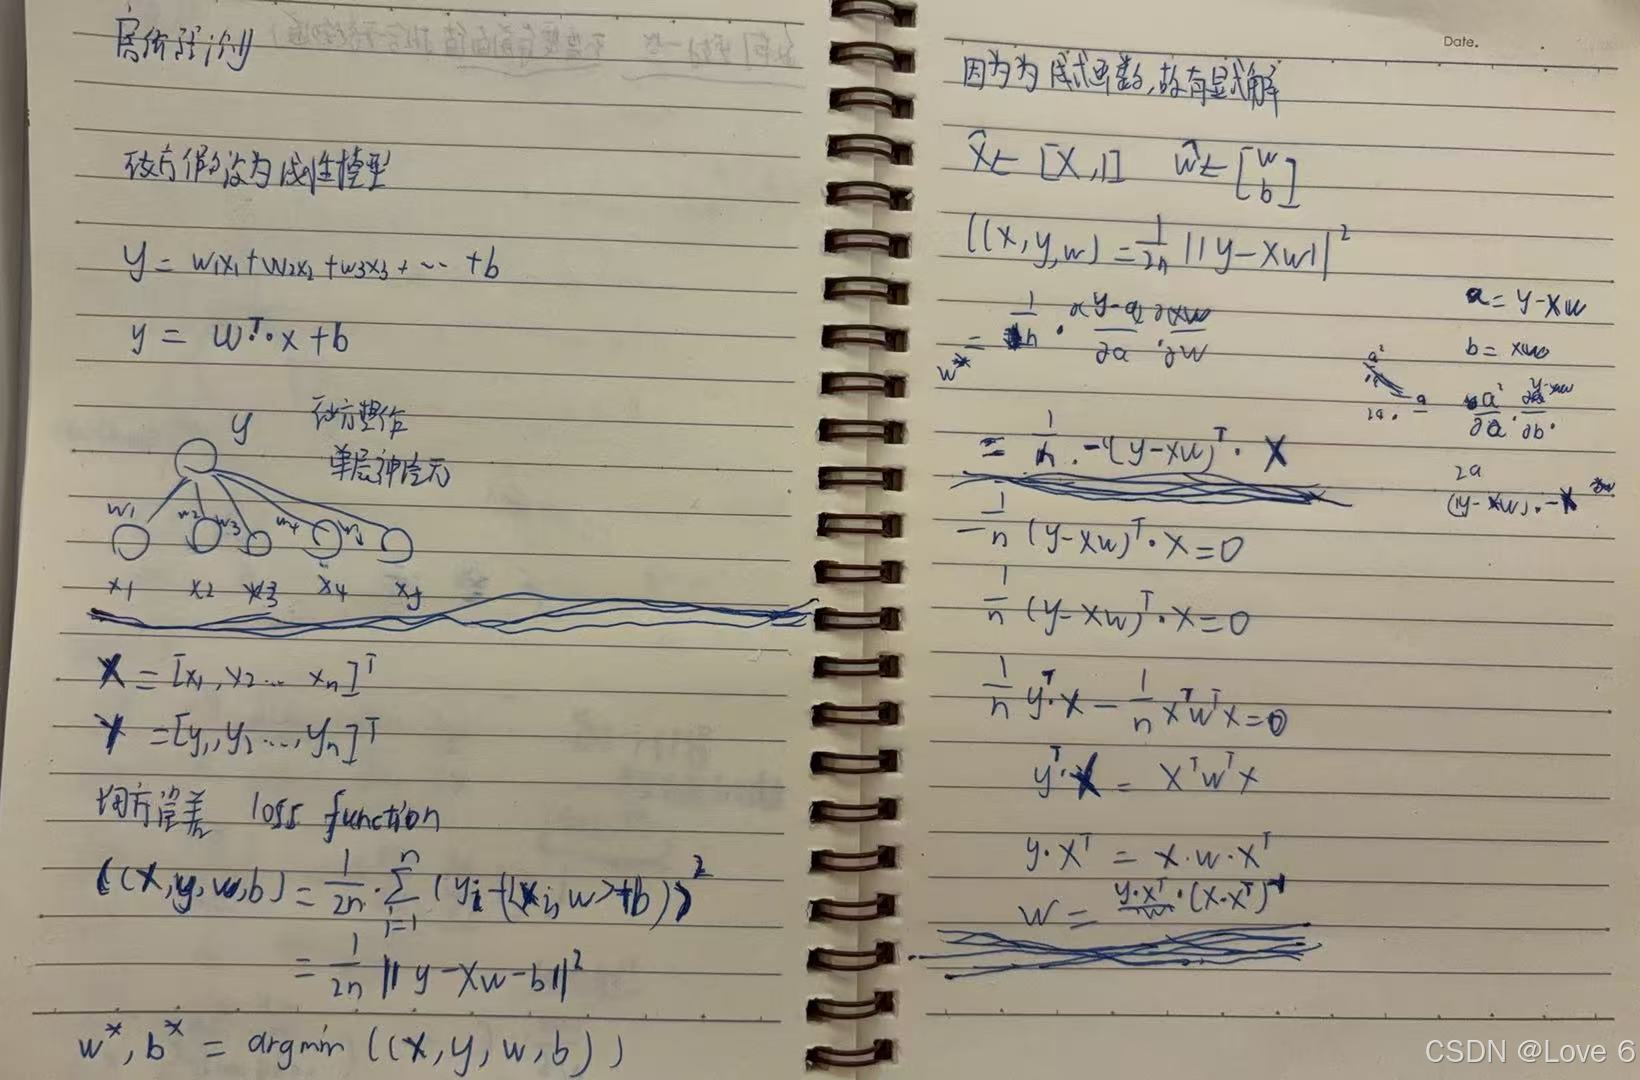 房价预测
我方假设为线性模型
y = w1x1+w2x2+w3x3+⋯+b
y = wᵀ·x+b
y
单层神经元
w1 w2 w3 w4 w5
x1 x2 x3 x4 x5
X = [x1, x2… xn]ᵀ
Y = [y1, y2…, yn]ᵀ
均方误差 loss function
l(X,y,w,b) = 1/2n · Σ(i=1→n) (yi-(<xi,w>+b))²
= 1/2n ||y-Xw-b||²
w*, b* = argmin l(X,y,w,b)
Date.
因为为线性函数,故有显式解
X̂← [X,1] ŵ← [w b]
l(X,y,w) = 1/2n ||y-Xw||²
w* = 1/n ·
a = y-Xw
b = xw
= 1/n · -(y-xw)ᵀ · X
2a
(y-xw)·-x
-1/n (y-xw)ᵀ·x=0
1/n (y-xw)ᵀ·x=0
1/n yᵀ·x - 1/n xᵀwᵀx=0
yᵀ·x = xᵀwᵀx
y·xᵀ = x·w·xᵀ
w = y·xᵀ·(x·xᵀ)⁻¹
CSDN @Love 6